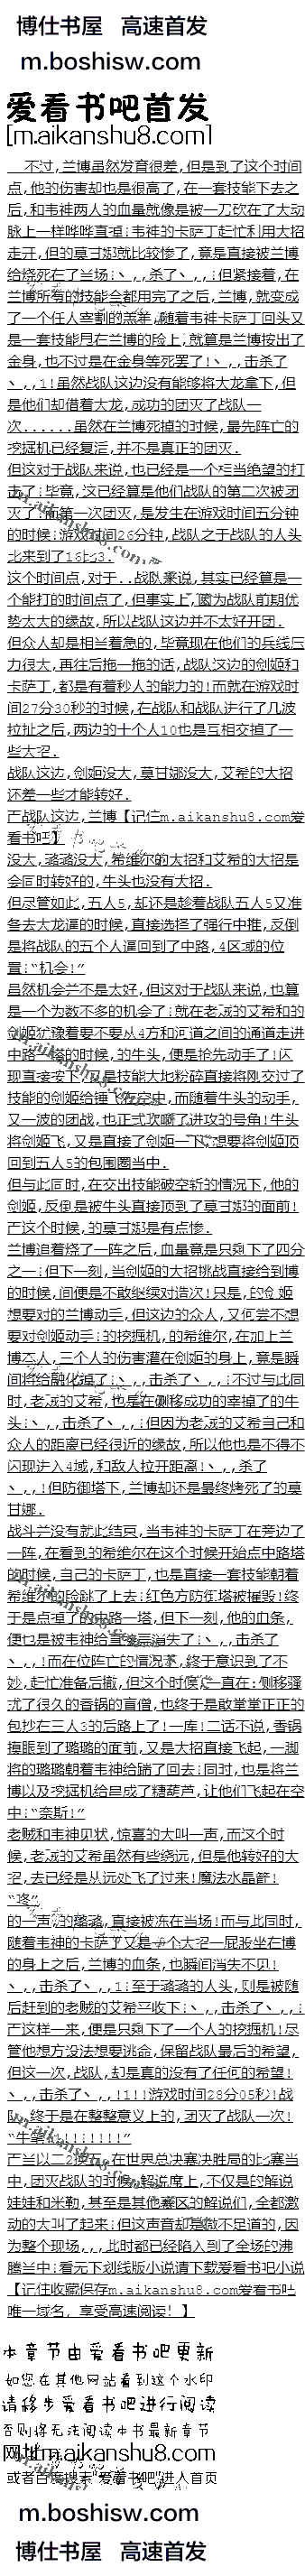 博仕书屋 高速首发
m.boshisw.com
爱看书吧首发
[m.aikanshu8.com]
不过,兰博虽然发育很差,但是到了这个时间
点,他的伤害却也是很高了,在一套技能下去之
后,和韦神两人的血量就像是被一刀砍在了大动
脉上一样哗哗直掉!韦神的卡萨丁赶忙利用大招
走开,但的莫甘娜就比较惨了,竟是直接被兰博
给烧死在了当场!丶,,杀了丶,,!但紧接着,在
兰博所有的技能全都用完了之后,兰博,就变成
了一个任人宰割的羔羊,随着韦神卡萨丁回头又
是一套技能甩在兰博的脸上,就算是兰博按出了
金身,也不过是在金身等死罢了!丶,,击杀了
丶,,1!虽然战队这边没有能够将大龙拿下,但
是他们却借着大龙,成功的团灭了战队一
次......虽然在兰博死掉的时候,最先阵亡的
挖掘机已经复活,并不是真正的团灭.
但这对于战队来说,也已经是一个相当绝望的打
击了!毕竟,这已经算是他们战队的第二次被团
灭了!而第一次团灭,是发生在游戏时间五分钟
的时候!游戏时间26分钟,战队之于战队的人头
比来到了16比3.
这个时间点,对于..战队来说,其实已经算是一
个能打的时间点了,但事实上,因为战队前期优
势太大的缘故,所以战队这边并不太好开团.
但众人却是相当着急的,毕竟现在他们的兵线压
力很大,再往后拖一拖的话,战队这边的剑姬和
卡萨丁,都是有着秒人的能力的!而就在游戏时
间27分30秒的时候,在战队和战队进行了几波
拉扯之后,两边的十个人10也是互相交掉了一
些大招.
战队这边,剑姬没大,莫甘娜没大,艾希的大招
还差一些才能转好.
而战队这边,兰博【记住m.aikanshu8.com爱
看书吧】
没大,璐璐没大,希维尔的大招和艾希的大招是
会同时转好的,牛头也没有大招.
但尽管如此,五人5,却还是趁着战队五人5又准
备去大龙逼的时候,直接选择了强行中推,反倒
是将战队的五个人逼回到了中路,4区域的位
置!“机会!”
虽然机会并不是太好,但这对于战队来说,也算
是一个为数不多的机会了!就在老贼的艾希和的
剑姬犹豫着要不要从4方和河道之间的通道走进
中路4塔的时候,的牛头,便是抢先动手了!闪
现直接按下,又是技能大地粉碎直接将刚交过了
技能的剑姬给捶飞起来,而随着牛头的动手,
又一波的团战,也正式吹响了进攻的号角!牛头
将剑姬飞,又是直接了剑姬一下,想要将剑姬顶
回到五人5的包围圈当中.
但与此同时,在交出技能破空斩的情况下,他的
剑姬,反倒是被牛头直接顶到了莫甘娜的面前!
而这个时候,的莫甘娜是有点惨.
兰博追着烧了一阵之后,血量竟是只剩下了四分
之一!但下一刻,当剑姬的大招挑战直接给到博
的时候,间便是不敢继续对造次!只是,的剑姬
想要对的兰博动手,但这边的众人,又何尝不想
要对剑姬动手!的挖掘机,的希维尔,在加上兰
博本人,三个人的伤害灌在剑姬的身上,竟是瞬
间将给融化掉了!丶,,击杀了丶,,!不过与此同
时,老贼的艾希,也是在侧移成功的宰掉了的牛
头!丶,,击杀了丶,,!但因为老贼的艾希自己和
众人的距离已经很近的缘故,所以他也是不得不
闪现进入4域,和敌人拉开距离!丶,,杀了
丶,,!但防御塔下,兰博却还是最终烤死了的莫
甘娜.
战斗并没有就此结束,当韦神的卡萨丁在旁边了
一阵,在看到的希维尔在这个时候开始点中路塔
的时候,自己的卡萨丁,也是直接一套技能朝着
希维尔的脸跳了上去!红色方防御塔被摧毁!终
于是点掉了的中路一塔,但下一刻,他的血条,
便也是被韦神给直接清空消失了!丶,,击杀了
丶,,!而在位阵亡的情况下,终于意识到了不
妙,赶忙准备后撤,但这个时候,一直在!侧移骚
扰了很久的香锅的盲僧,也终于是敢堂堂正正的
包抄在三人3的后路上了!一库!二话不说,香锅
摸眼到了璐璐的面前,又是大招直接飞起,一脚
将的璐璐朝着韦神给踹了回去!同时,也是将兰
博以及挖掘机给串成了糖葫芦,让他们飞起在空
中!“奈斯!”
老贼和韦神见状,惊喜的大叫一声,而这个时
候,老贼的艾希虽然有些绕远,但是他转好的大
招,去已经是从远处飞了过来!魔法水晶箭!
“咚”
的一声,的璐璐,直接被冻在当场!而与此同时,
随着韦神的卡萨丁又是一个大招一屁股坐在博
的身上之后,兰博的血条,也瞬间消失不见!
丶,,击杀了丶,,1!至于璐璐的人头,则是被随
后赶到的老贼的艾希平收下!丶,,击杀了丶,,!
而这样一来,便是只剩下了一个人的挖掘机!尽
管他想方设法想要逃命,保留战队最后的希望,
但这一次,战队,却是真的没有了任何的希望!
丶,,击杀了丶,,!!!!游戏时间28分05秒!战
队,终于是在整整意义上的,团灭了战队一次!
“牛啤!!!!!!!!”
在世界总决赛决胜局的比赛当
中,团灭战队的时候,解说席上,不仅是的解说
娃娃和米勒,甚至是其他赛区的解说们,全都激
动的大叫了起来!但这声音却是微不足道的,因
为整个现场,,,此时都已经陷入到了全场的沸
腾当中!看无下划线版小说请下载爱看书吧小说
【记住收藏保存m.aikanshu8.com爱看书吧
唯一域名, 享受高速阅读! 】
本章节由爱看书吧更新
如您在其他网站看到这个水印
请移步爱看书吧进行阅读
否则将无法阅读本书最新章节
网址m.aikanshu8.com
或者百度搜索“爱看书吧”进入首页
m.boshisw.com
博仕书屋 高速首发